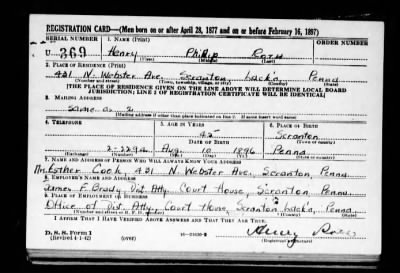 REGISTRATION CARD—(Men born on or after April 28, 1877 and on or before February 16, 1897)
SERIAL NUMBER 1. NAME (Print) ORDER NUMBER
U 369 Henry Philip
(First) (Middle) (Last)
2. PLACE OF RESIDENCE (Print)
421 N. Webster Ave. Scranton Lack'a Penna
(Number and street) (Town, township, village, or city) (County) (State)
[THE PLACE OF RESIDENCE GIVEN ON THE LINE ABOVE WILL DETERMINE LOCAL BOARD
JURISDICTION; LINE 2 OF REGISTRATION CERTIFICATE WILL BE IDENTICAL]
3. MAILING ADDRESS
Same as 2
[Mailing address if other than place indicated on line 2. If same insert word same]
4. TELEPHONE 5. AGE IN YEARS 6. PLACE OF BIRTH
45 Scranton
DATE OF BIRTH (Town or county)
2-2294 Aug. 10 1896 Penna
(Exchange) (Number) (Mo.) (Day) (Yr.) (State or country)
7. NAME AND ADDRESS OF PERSON WHO WILL ALWAYS KNOW YOUR ADDRESS
Mrs. Esther Cook, 421 N. Webster Ave., Scranton, Penna.
8. EMPLOYER'S NAME AND ADDRESS
James F. Brady Dist. Atty. Court House, Scranton Penna.
9. PLACE OF EMPLOYMENT OR BUSINESS
Office of Dist. Atty. Court House, Scranton Lack'a. Penna
(Number and street or R. F. D. number) (Town) (County) (State)
I AFFIRM THAT I HAVE VERIFIED ABOVE ANSWERS AND THAT THEY ARE TRUE.
D. S. S. Form 1
(Revised 4-1-42) (over) Henry
(Registrant's signature)